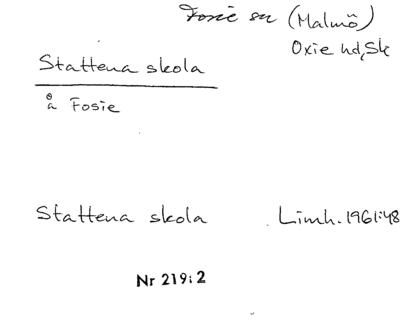 Fosie sn (Malmö)
Oxie hd, Sk
Stattena skola
å Fosie
Stattena skola Limh. 1961:48
Nr 219:2